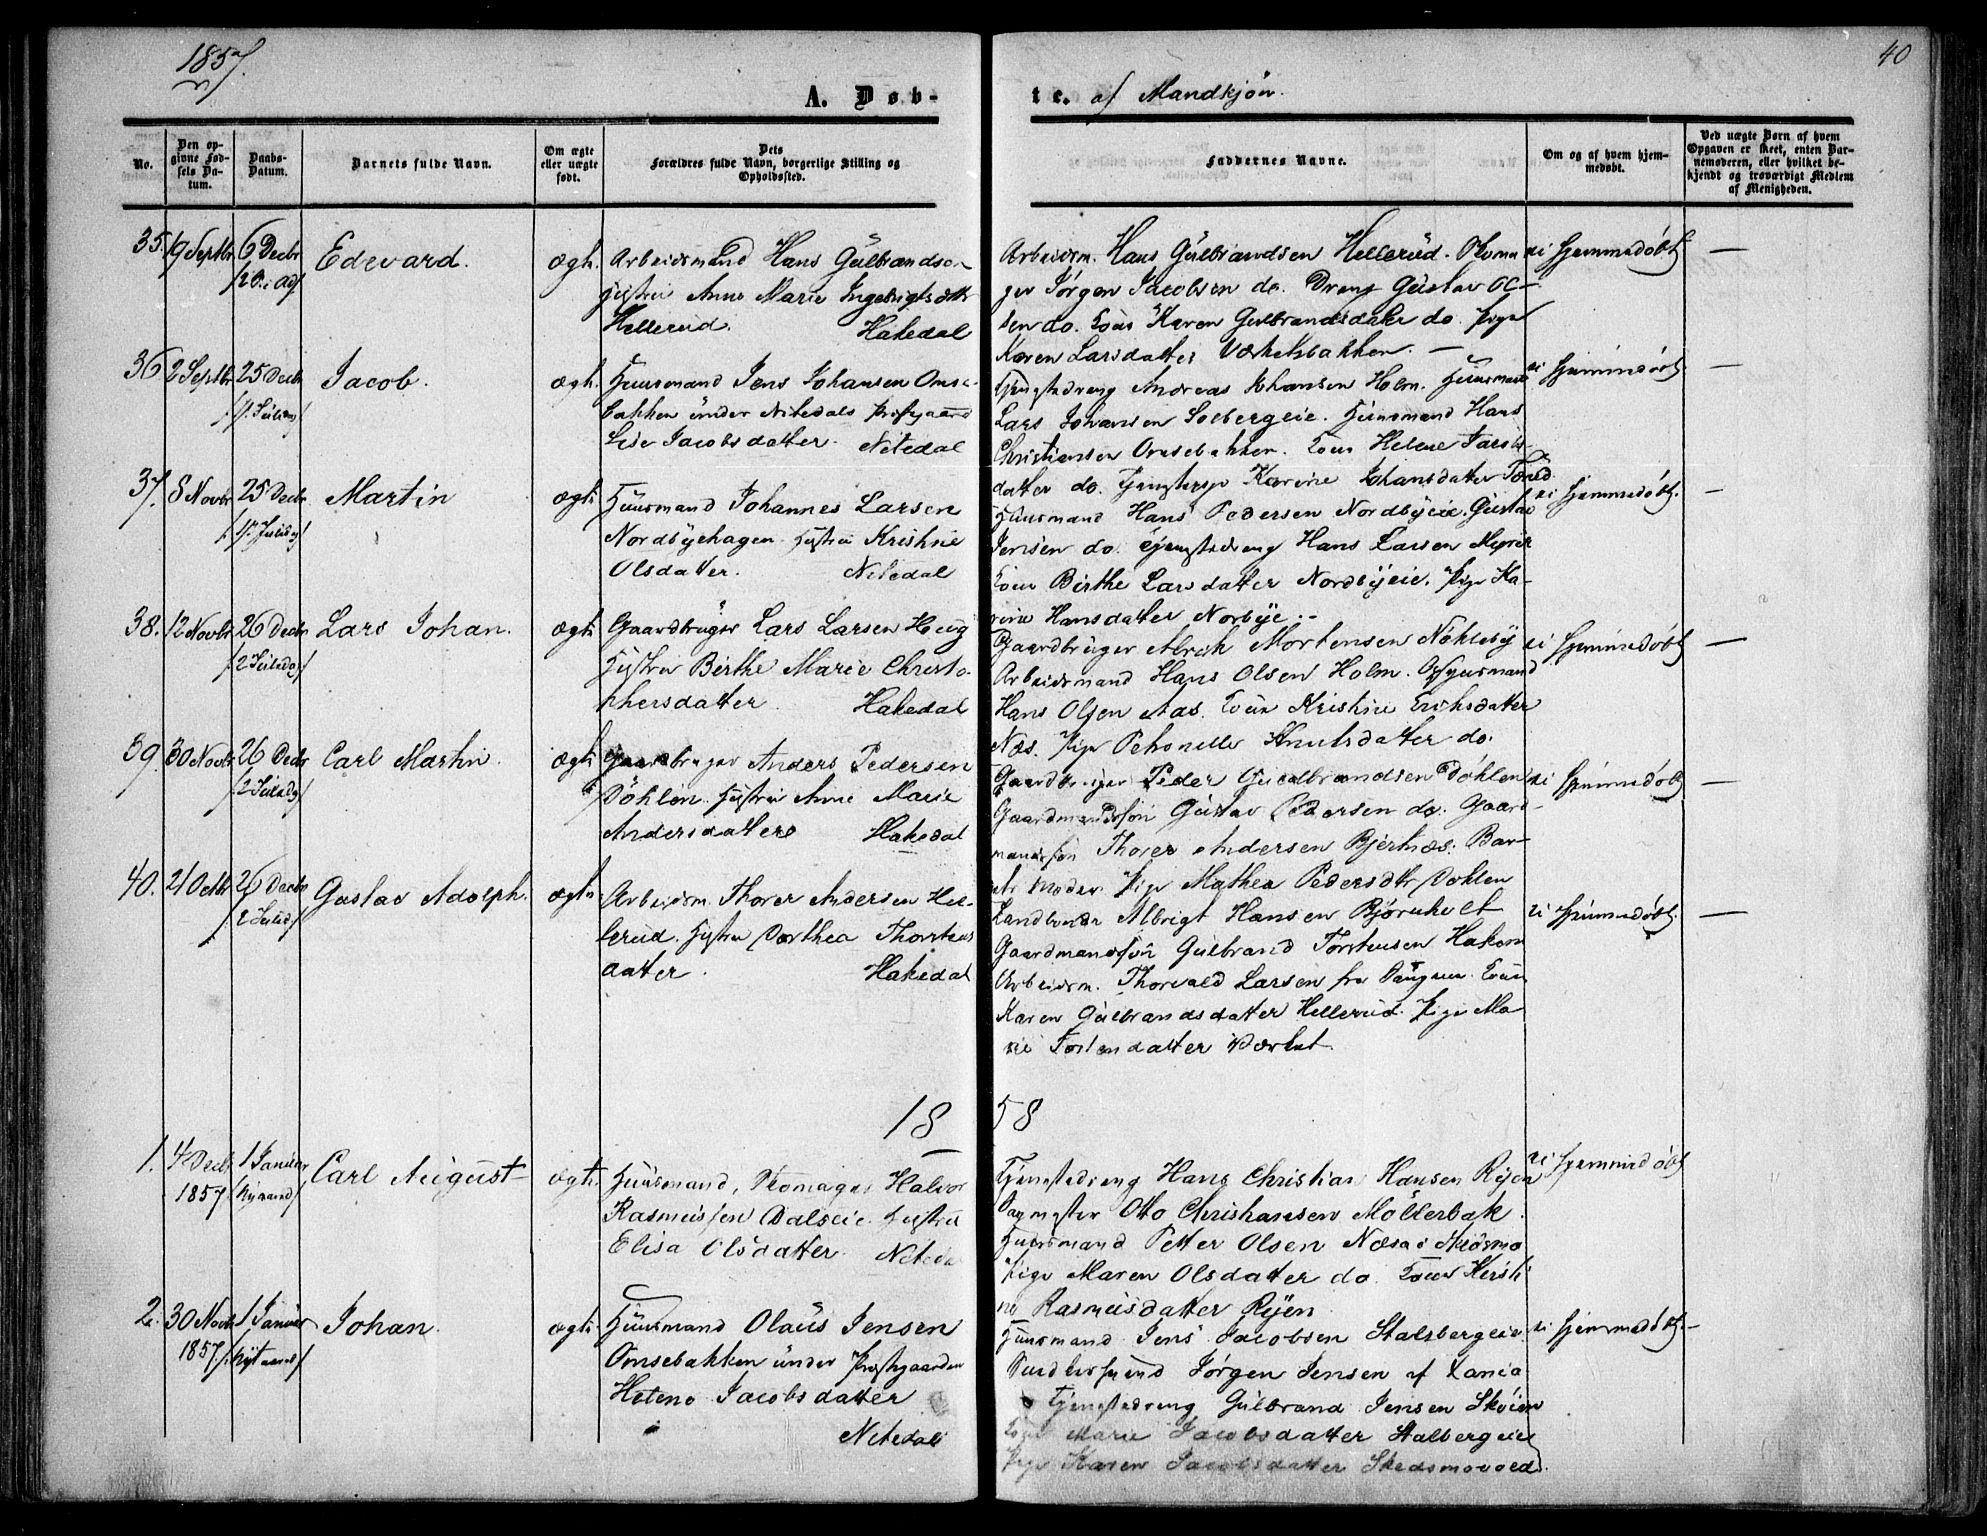 1857.
40
A. Døb-
te. af Mandkjøn.
No.
Den op-
givne Fød-
sels Da-
tum.
Daabs-
Datum.
Barnets fulde Navn.
Om ægte
eller uægte
født.
Dets
Forældres fulde Navn, borgerlige Stilling og
Opholdssted.
Faddernes Navne.
Om og af hvem hjem-
medøbt.
Ved uægte Børn af hvem
Opgaven er skeet, enten Bar-
nemoderen, eller hvilket be-
kjendt og troværdigt Medlem
af Menigheden.
35. 19 Septbr 6 Decbr Edevard. ægte. Arbeidsmand Hans Gulbrandsen
Hustru Anne Marie Ingebrigtsdatter
Hellerud. Hakedal
Arbeidsm. Hans Gulbrandsen Hellerud.
ger Jørgen Jacobsen do. Dreng Gustav Ol-
sen do. Kone Karen Gulbrandsdatter do. Pige
Karen Larsdatter Værketsbakken. —
ei hjemmedøbt —
36 2 Septbr 25 Decbr /1. Juledag/ Jacob. ægte. Huusmand Jens Johansen Omse-
bakken under Nitedals Præstgaard
Lise Jacobsdatter. Nitedal
Tjenestedreng Andreas Johansen Holm. Huusmand
Lars Johansen Solbergeie. Huusmand Hans
Christiansen Omsebakken. Kone Helene Jacobs-
datter do. Karine Johansdatter
ei hjemmedøbt. —
37. 8 Novbr 25 Decbr /1. Juledag/ Martin ægte Huusmand Johannes Larsen
Nordbyehagen Hustru Kristine
Olsdatter. Nitedal
Huusmand Hans Pedersen Nordbyeie. Gustav
Jensen do. Tjenestedreng Hans Larsen
Kone Birthe Larsdatter Nordbyeie. Pige Ka-
rine Hansdatter Norbye. —
ei hjemmedøbt. —
38. 12 Novbr 26 Decbr /2 Juledag/ Lars Johan. ægte Gaardbruger Lars Larsen Haug
Hustru Birthe Marie Christo-
phersdatter. Hakedal
Gaardbruger Mortensen
Arbeidsmand Hans Olsen Holm. Huusmand
Hans Olsen Aas. Kone Kristine Eriksdatter
Næs. Pige Petronelle Knutsdatter do.
ei hjemmedøbt —
39. 30 Novbr 26 Decbr /2 Juledag/ Carl Martin. ægte Gaardbruger Anders Pedersen
Døhlen. Hustru Anne Marie
Andersdatter Hakedal
Gaardbruger Peder Gulbrandsen Døhlen
Gaardmandssøn Gustav Pedersen do. Gaard-
mandssøn Thorer Andersen Bjertnæs. Bar-
nets Moder. Pige Mathea Pedersdtr Døhlen
ei hjemmedøbt —
40. 21 Octbr 26 Decbr /2 Juledag/ Gustav Adolph. ægte Arbeidsm. Thorer Andersen Hel-
lerud. Hustru Dorthea Thorstens
datter. Hakedal
Albrigt Hansen Bjørnholt
Gaardmandssøn Gulbrand Torstensen Hakom
Arbeidsm. Thorvald Larsen fra Kone
Karen Gulbrandsdatter Hellerud. Pige Ma-
rie Torstensdatter Værket.
ei hjemmedøbt. —
18 58
1. 4 Decbr 1857. 1 Januar /Nytaarsd/ Carl August ægte. Huusmand, Skomager Halvor
Rasmussen Dalseie. Hustru
Elisa Olsdatter. Nitedal
Tjenestedreng Hans Christian Hansen Ryen
Otto Christiansen Møllerbak.
Huusmand Petter Olsen Næsa i Skedsmo
Pige Maren Olsdatter do. Kone Kirsti-
ne Rasmusdatter Ryen
ei hjemmedøbt
2. 30 Novbr 1857. 1 Januar /Nytaarsd/ Johan. ægte. Huusmand Olaus Jensen
Omsebakken under Præstgaarden
Helene Jacobsdatter
Nitedal
Huusmand Jens Jacobsen Stalsbergeie
Jørgen Jensen af Lania
Tjenestedreng Gulbrand Jensen Skøien
Kone Marie Jacobsdatter Stalbergeie
Pige Karen Jacobsdatter Skedsmovold.
ei hjemmedøbt. —